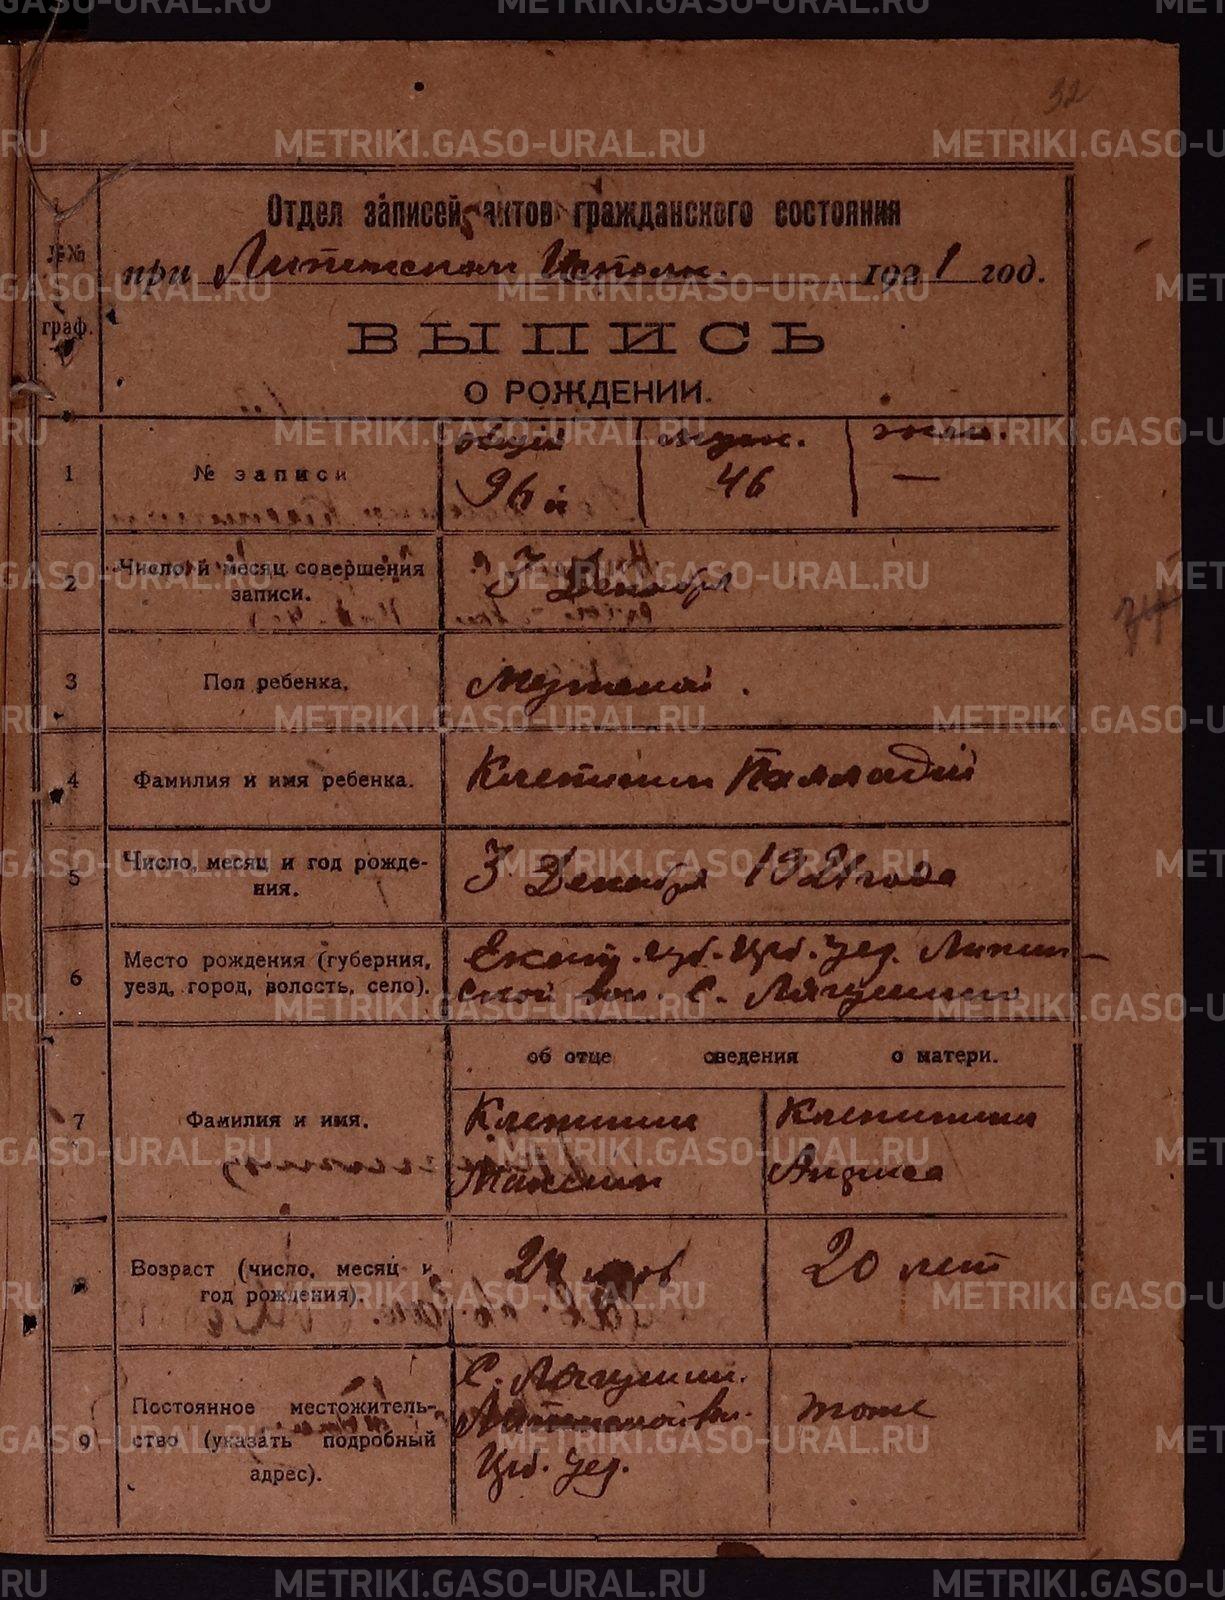 32
Отдел записей актов гражданского состояния
при Липинском Исполк. 1921 год.
№№ граф.
ВЫПИСЬ
О РОЖДЕНИИ.
1 № записи общий мужс. женс.
96й 46 —
2 Число и месяц совершения записи. 3 Декабря
3 Пол ребенка. Мужской.
4 Фамилия и имя ребенка. Клепинин Палладий
5 Число, месяц и год рождения. 3 Декабря 1921 года
6 Место рождения (губерния, Екат. губ. Ирб. уез. Липин-
уезд, город, волость, село). ской вол. с. Лягушино
об отце сведения о матери.
7 Фамилия и имя. Клепинин Клепинина
Максим Анфиса
8 Возраст (число, месяц и 20 лет
год рождения).
9 Постоянное местожитель- С. Лягушин. тоже
ство (указать подробный Липинской вол.
адрес). Ирб. уез.
METRIKI.GASO-URAL.RU